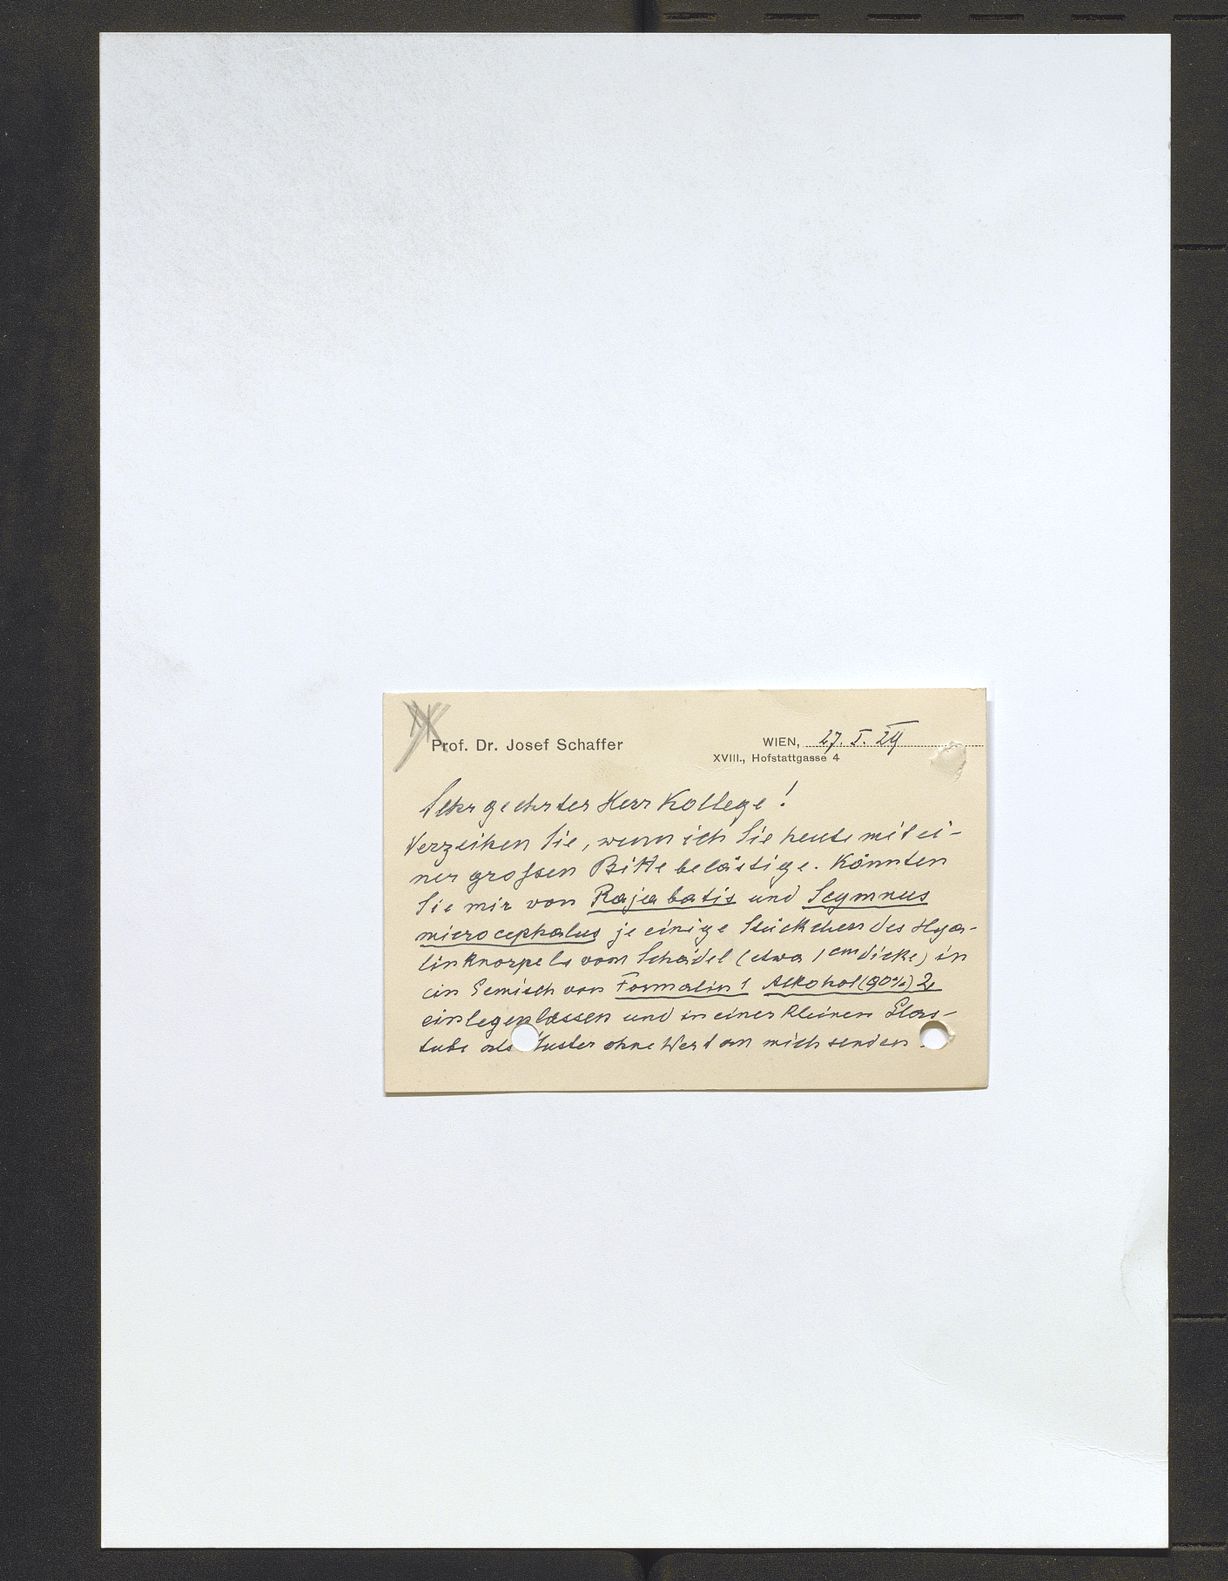 Prof. Dr. Josef Schaffer
WIEN, 27. I. 29
XVIII., Hofstattgasse 4
Sehr geehrter Herr Kollege!
Verzeihen Sie, wenn ich Sie heute mit ei-
ner grossen Bitte belästige. Könnten
Sie mir von Raja batis und Scymnus
microcephalus je einige Stückchen des Hya-
linknorpels vom Schädel (etwa 1 cm dicke) in
ein Gemisch von Formalin 1 Alkohol (90%) 2
einlegen lassen und in einer kleinen Glas-
tube als Muster ohne Wert an mich senden